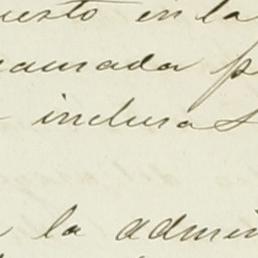 uesto en la
causada p
inclusas
la admin